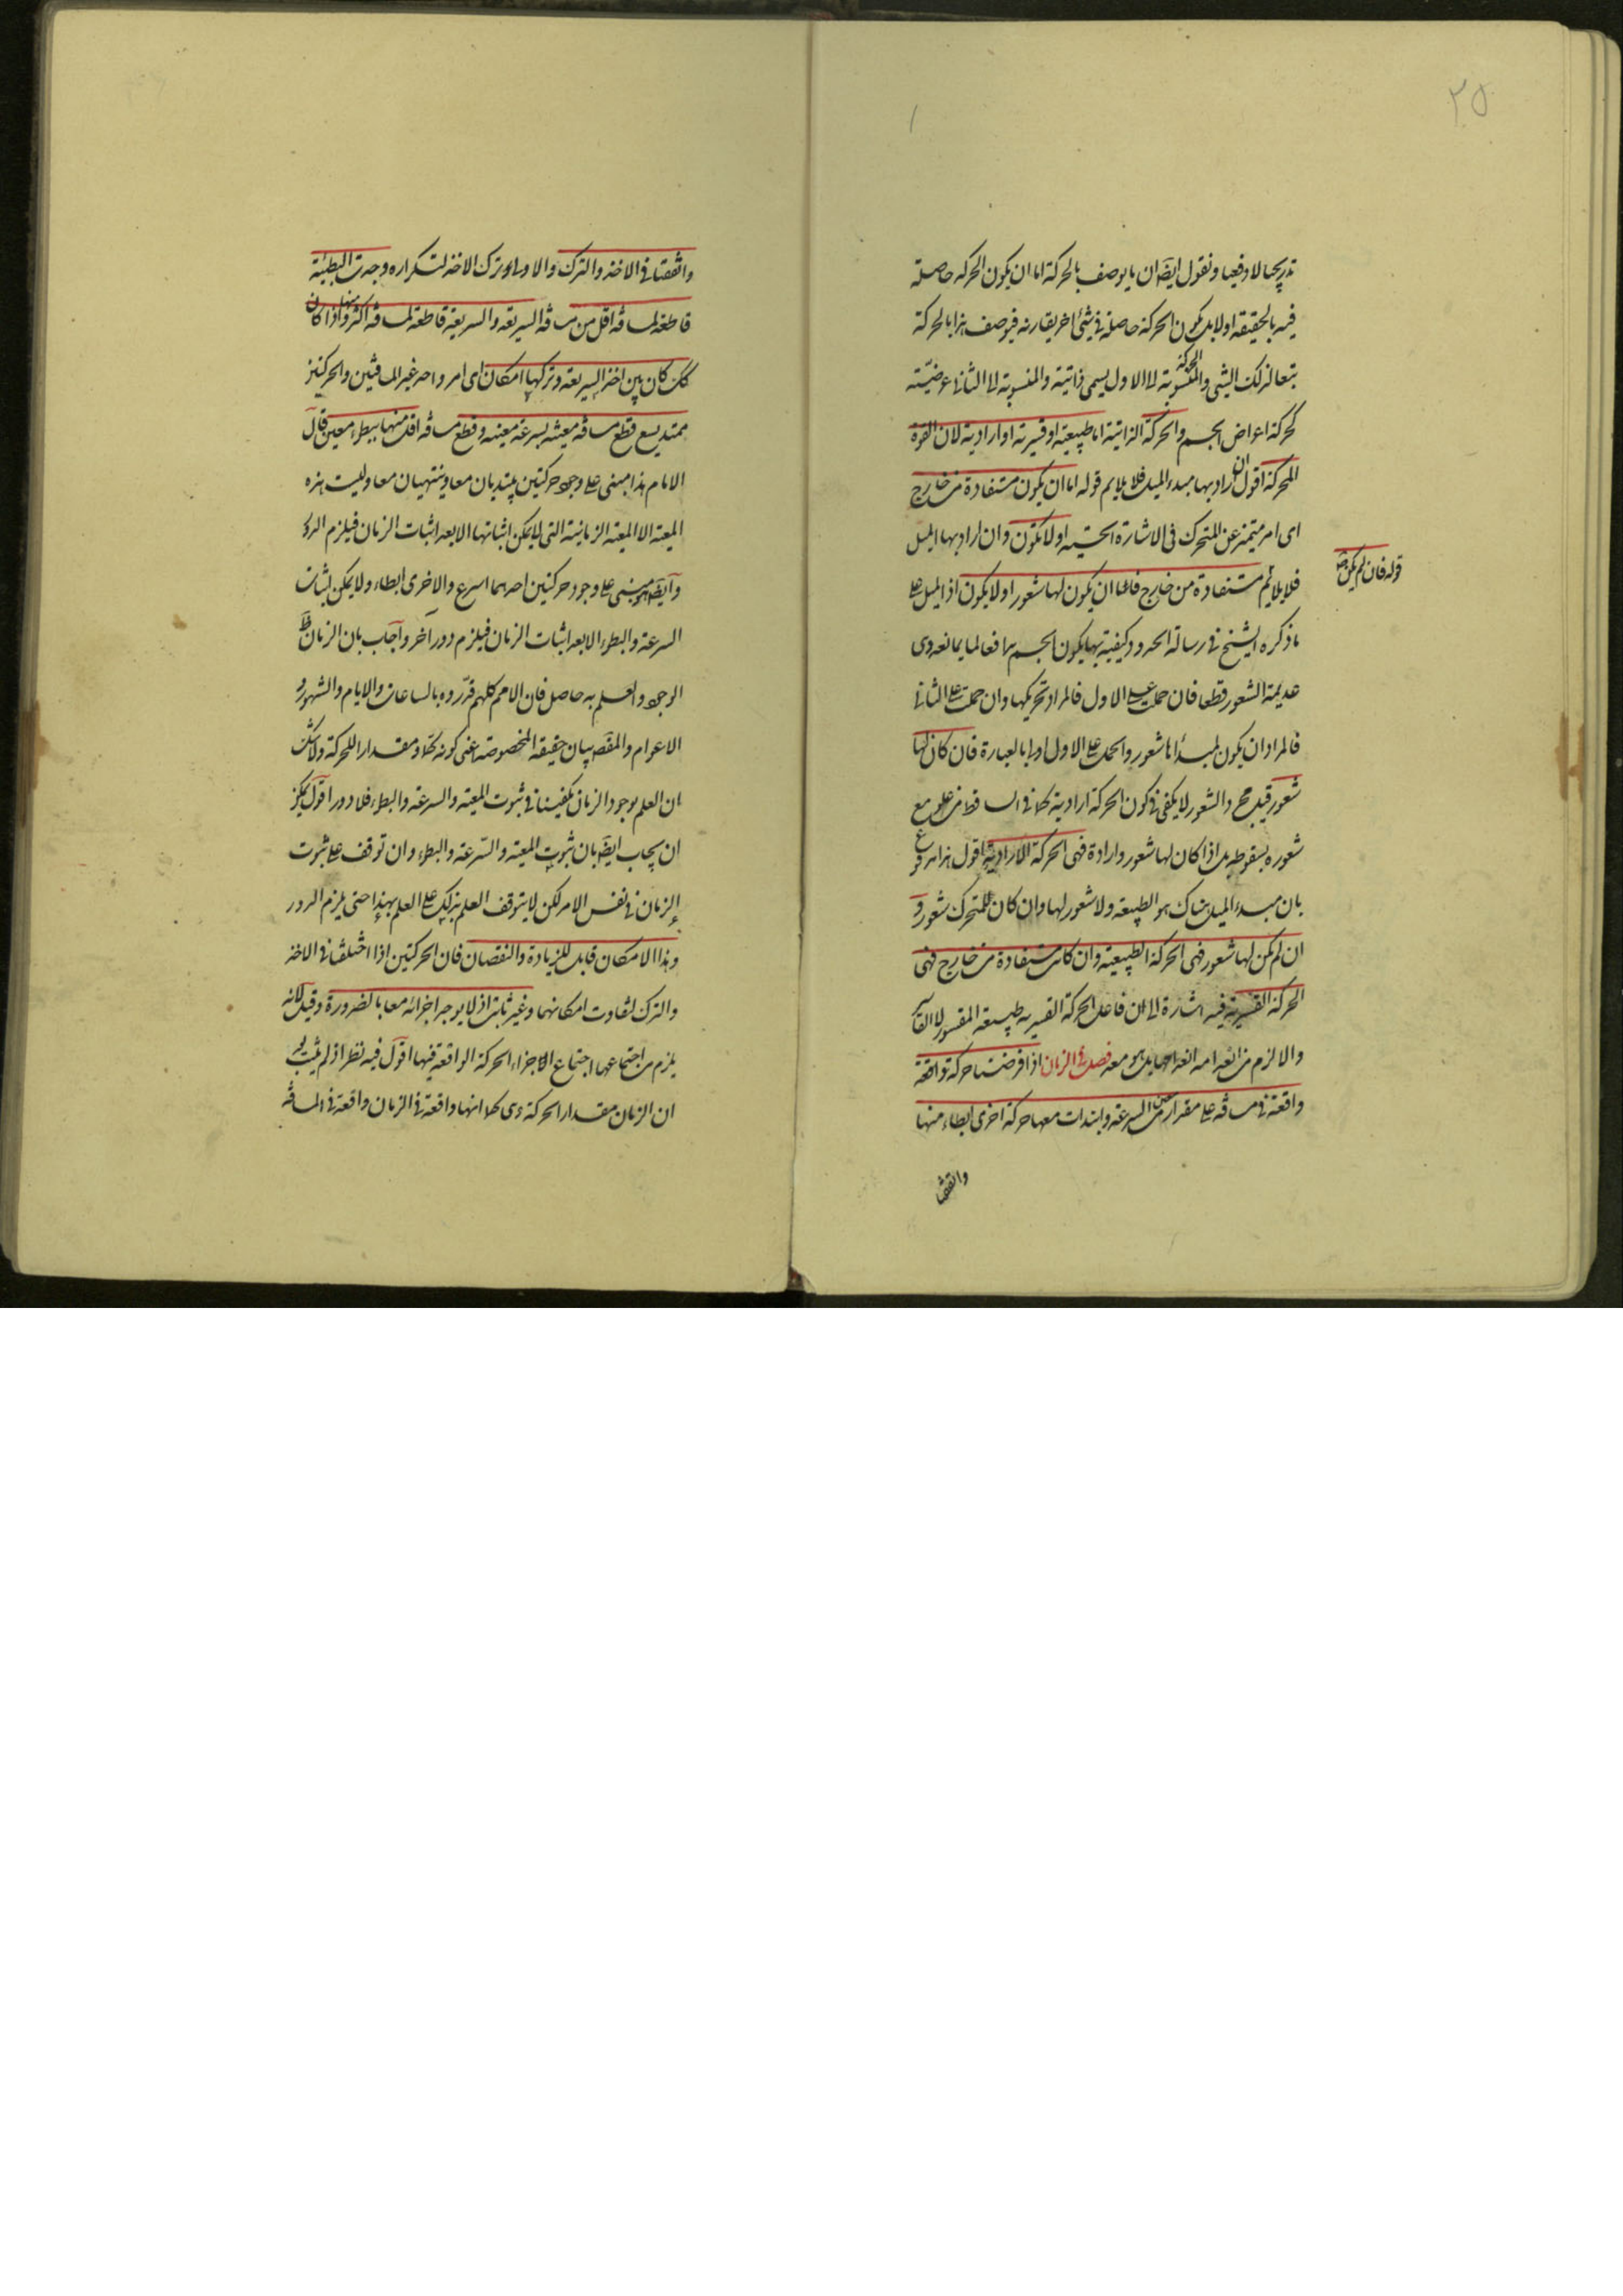 ٢٥
تدريجيا لا دفعيا ونقول ايضا ان ما يوصف بالحركة اما ان يكون الحركة حاصلة
فيه بالحقيقة اولا بل يكون الحركة حاصلة في شئ اخر يقارنه فيوصف هذا بالحركة
تبعا لذلك الشئ والحركة المنسوبة الى الاول يسمى ذاتية والمنسوبة الى الثاني عرضية
كحركة اعراض الجسم والحركة الذاتية اما طبيعية او قسرية او ارادية لان القوة
المحركة اقول ان اراد بها مبدء الميل فلا يلايم قوله اما ان يكون مستفادة من خارج
اى امر متميز عن المتحرك فى الاشارة الحسية اولا تكون وان اراد بها الميل
قوله فان لم يكن
فلا يلايم مستفادة من خارج فاما ان يكون لها شعور اولا يكون اذ الميل على
ما ذكره الشيخ في رسالة الحدود كيفية بها يكون الجسم مدافعا لما يمانعه وهى
عديمة الشعور قطعا فان حملت على الاول فالمراد تحريكها وان حملت على الثاني
فالمراد ان يكون لمبدأها شعور والحمل على الاول اولى بالعبارة فان كان لها
شعور قيل مجرد الشعور لا يكفى في كون الحركة ارادية كما في الساقط من علو مع
شعوره بسقوطه بل اذا كان لها شعور وارادة فهى الحركة الارادية اقول هذا مدفوع
بان مبدء الميل هناك هو الطبيعة ولا شعور لها وان كان للمتحرك شعور و
ان لم يكن لها شعور فهى الحركة الطبيعية وان كانت مستفادة من خارج فهى
الحركة القسرية فيه اشارة الى ان فاعل الحركة القسرية طبيعة المقسور لا القاسر
والا لزم من انعدامه انعدامها بل هو معد فصل في الزمان اذا فرضنا حركة واقعة
واقعة في مسافة على مقدار معين من السرعة وابتدات معها حركة اخرى ابطاء منها
واتفقتا
واتفقتا في الاخذ والترك والاولى او ترك الاخذ لتكراره وجدت البطيئة
قاطعة لمسافة اقل من مسافة السريعة والسريعة قاطعة لمسافة اكثر منها واذا كان
كك كان بين اخذ السريعة وتركها امكان اى امر واحد غير المسافتين والحركتين
ممتد يسع قطع مسافة معينة بسرعة معينة وقطع مسافة اقل منها ببطء معين قال
الامام هذا مبنى على وجود حركتين يبتديان معا وينتهيان معا وليست هذه
المعية الا المعية الزمانية التي لا يمكن اثباتها الا بعد اثبات الزمان فيلزم الدور
وايضا هو مبنى على وجود حركتين احدهما اسرع والاخرى ابطاء ولا يمكن اثبات
السرعة والبطء الا بعد اثبات الزمان فيلزم دور اخر واجاب بان الزمان ظ
الوجود والعلم به حاصل فان الامم كلهم قدروه بالساعات والايام والشهور و
الاعوام والمقص بيان حقيقة المخصوصة اعنى كونه كما ومقدارا للحركة ولا شك
ان العلم بوجود الزمان يكفينا في ثبوت المعية والسرعة والبطء فلا دور اقول يمكن
ان يجاب ايضا بان ثبوت المعية والسرعة والبطء وان توقف على ثبوت
الزمان في نفس الامر لكن لا يتوقف العلم بذلك على العلم بهذا حتى يلزم الدور
وهذا الامكان قابل للزيادة والنقصان فان الحركتين اذا اختلفتا في الاخذ
والترك تفاوت امكانهما وغير ثابت اذ لا يوجد اجزائه معا بالضرورة وقيل لانه
يلزم من اجتماعها اجتماع الاجزاء الحركة الواقعة فيها اقول فيه نظر اذ لم يثبت بعد
ان الزمان مقدار الحركة وهى كما انها واقعة في الزمان واقعة في المسافة